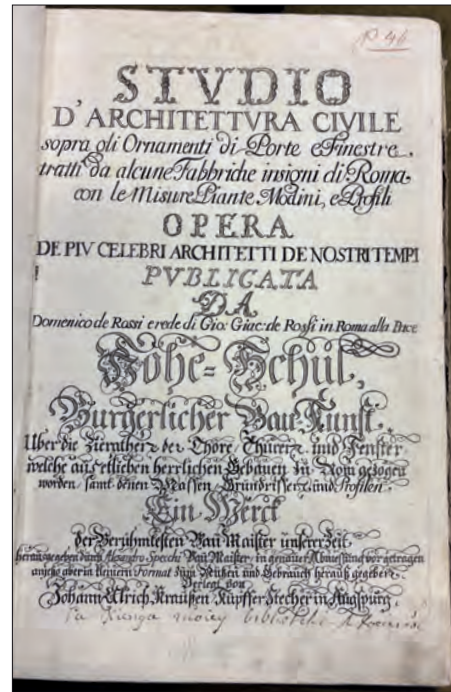 P. 46
STVDIO
D'ARCHITETTVRA CIVILE
sopra gli Ornamenti di Porte e Finestre,
tratti da alcune Fabbriche insigni di Roma
con le Misure Piante Modini, e Profili
OPERA
DE PIV CELEBRI ARCHITETTI DE NOSTRI TEMPI
PVBLICATA
DA
Domenico de Rossi erede di Gio: Giac: de Rossi in Roma alla Pace
Hohe-Schul,
Burgerlicher Bau-Kunst,
Uber die Zierathen der Thore Thüren und Fenster
welche auß etlichen herrlichen Gebäuen zu Rom gezogen
worden, samt denen Massen, Grundrissen, und Profilen.
Ein Werck
der Berühmtesten Bau Maister unserer Zeit,
herausgegeben durch Alexandro Specchi Bau Maister, in genauer Abmessung vorgetragen
anjetzo aber in kleinem Format zum Nutzen und Gebrauch herauß gegeben
Verlegt von
Johann Ulrich Kraußen Kupffer Stecher in Augspurg.